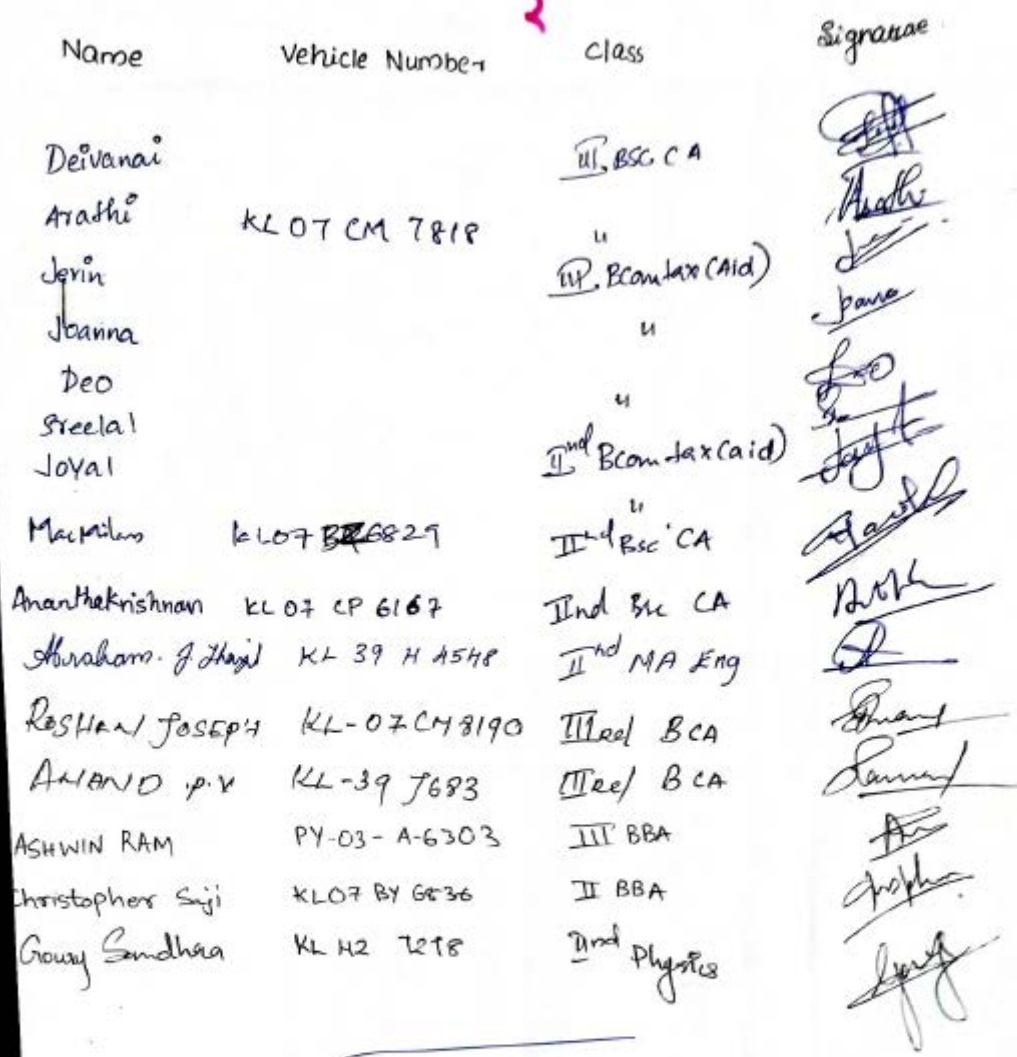 Name Vehicle Number Class Signature
Deivanai III. BSC CA
Arathi KL 07 CM 7818 "
Jerin III. Bcom tax (Aid)
Joanna "
Deo "
Sreelal IInd Bcom tax (aid)
Joyal "
MacMilan KL07 6829 IInd Bsc CA
Ananthakrishnan KL 07 CP 6167 IInd Bsc CA
Abraham. J. KL 39 H 4548 IInd MA Eng
ROSHAN JOSEPH KL-07 CM 8190 III BCA
ANAND P.V KL-39 J683 III BCA
ASHWIN RAM PY-03-A-6303 III BBA
Christopher Suji KL07 BY 6836 II BBA
Goury Sandhra KL 7278 IInd Physics